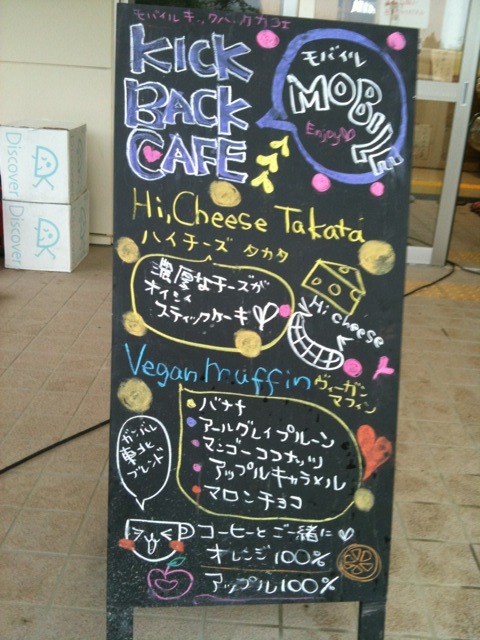 モバイルキックバックカフェ
KICK
BACK
CAFE
モバイル
MOBILE
Enjoy
Hi, Cheese Takata
ハイチーズ タカタ
濃厚なチーズが
オイシイ
スティックケーキ
Hi cheese
Vegan muffin
ヴィーガン
マフィン
バナナ
アールグレイプルーン
マンゴーココナッツ
アップルキャラメル
マロンチョコ
ガンバレ
東北
ブレンド
コーヒーとご一緒に
オレンジ100%
アップル100%
Discover
Discover